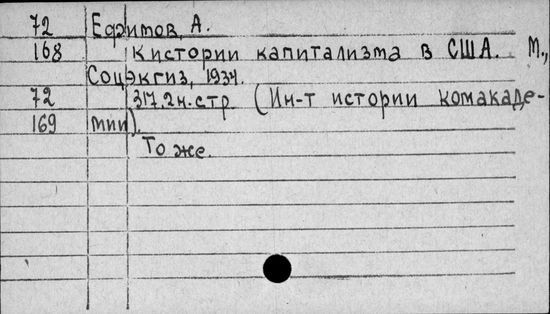 72 Ефимов, А.
168 К истории капитализма в США. М.,
Соцэкгиз, 1934.
72 317, 2 н. стр (Ин-т истории комакаде-
169 мии).
То же.